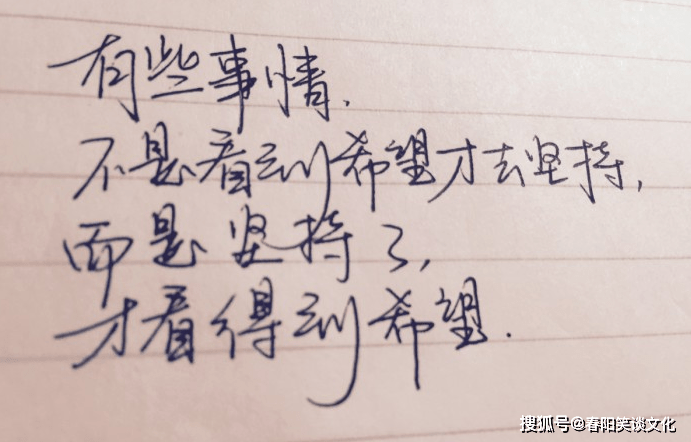 有些事情.
不是看到希望才去坚持,
而是坚持了,
才看得到希望.
搜狐号@春阳笑谈文化